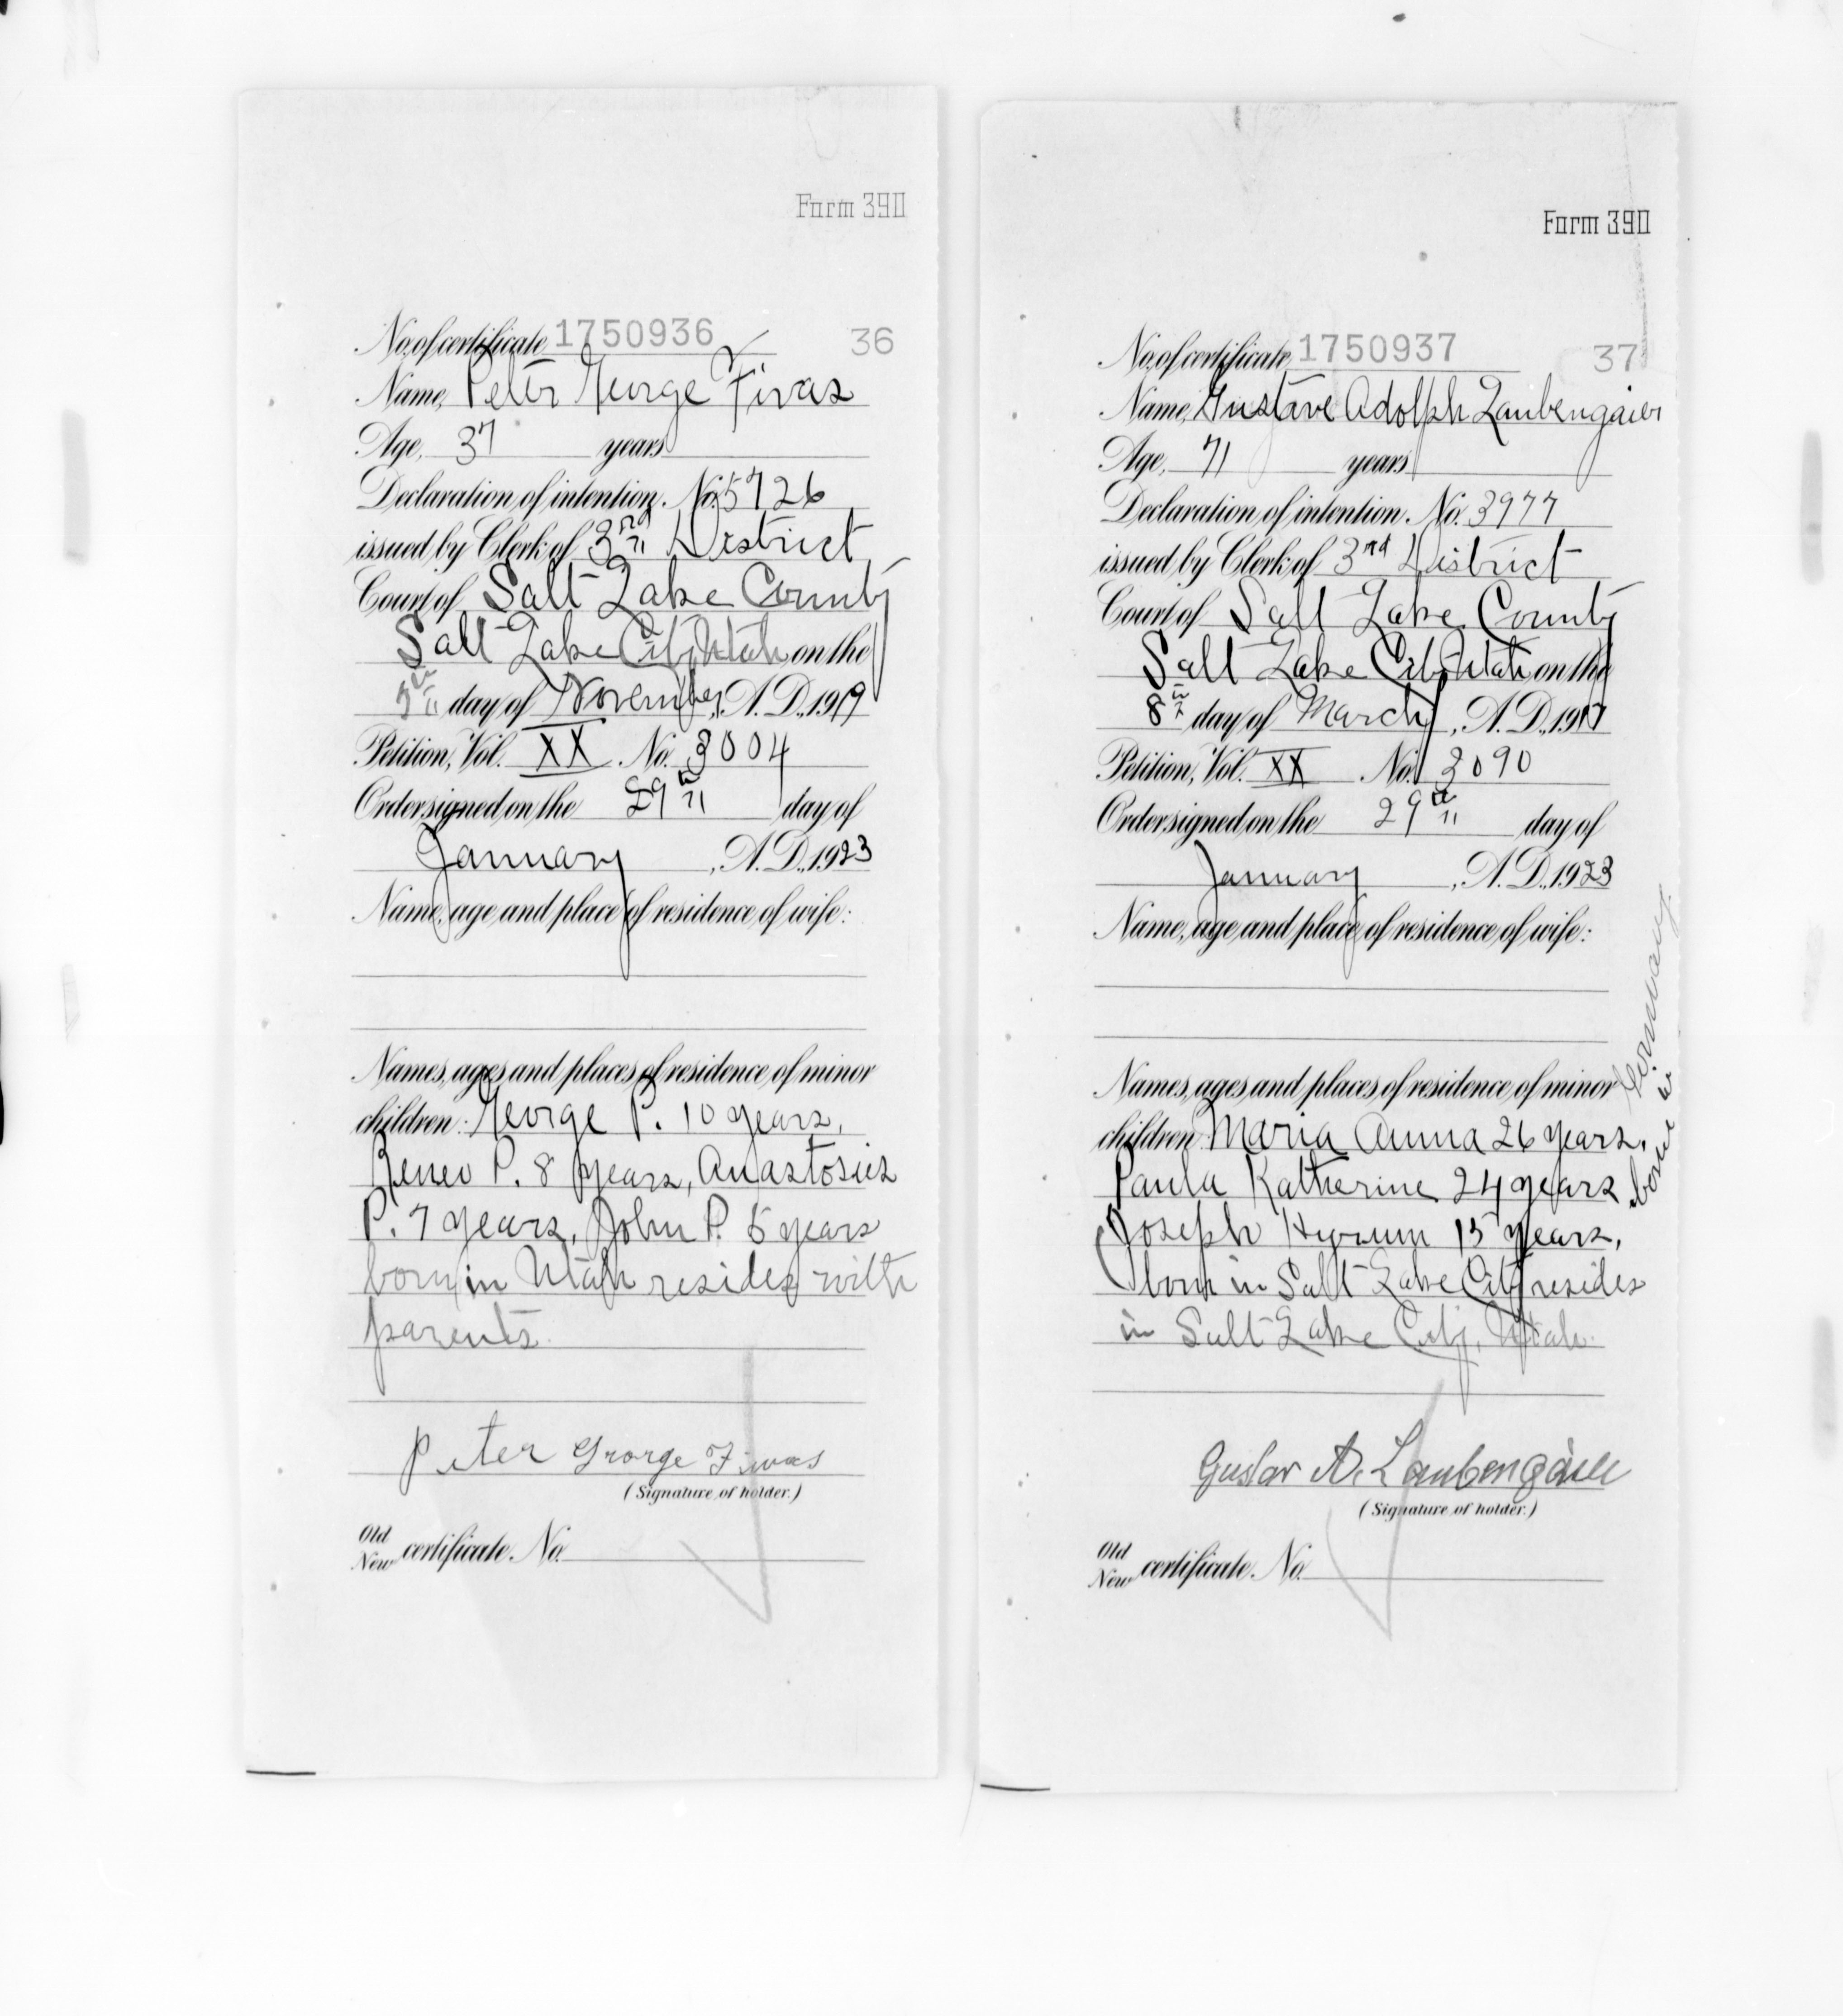 Form 390
No. of certificate 1750936 36
Name, Peter George Fivas
Age, 37 years
Declaration of intention No. 5726
issued by Clerk of 3rd District
Court of Salt Lake County
Salt Lake City Utah on the
day of November, A. D., 1919
Petition, Vol. XX No. 3004
Order signed on the 29th day of
January, A. D., 1923
Name, age and place of residence of wife:
Names, ages and places of residence of minor
children: George P. 10 years,
P. 8 years, Anastosies
P. 7 years, John P. 5 years
born in Utah resides with
parents.
Peter George Fivas
(Signature of holder.)
Old
New certificate No.
Form 390
No. of certificate 1750937 37
Name, Gustave Adolph Laubengaier
Age, 71 years
Declaration of intention No. 3977
issued by Clerk of 3rd District
Court of Salt Lake County
Salt Lake City Utah on the
8th day of March, A. D., 1917
Petition, Vol. XX No. 3090
Order signed on the 29th day of
January, A. D., 1923
Name, age and place of residence of wife:
Names, ages and places of residence of minor
children: Maria Anna 26 years,
Paula Katherine 24 years born in Germany.
Joseph Hyrum 15 years,
born in Salt Lake City resides
in Salt Lake City, Utah.
Gustav A. Laubengaier
(Signature of holder.)
Old
New certificate No.